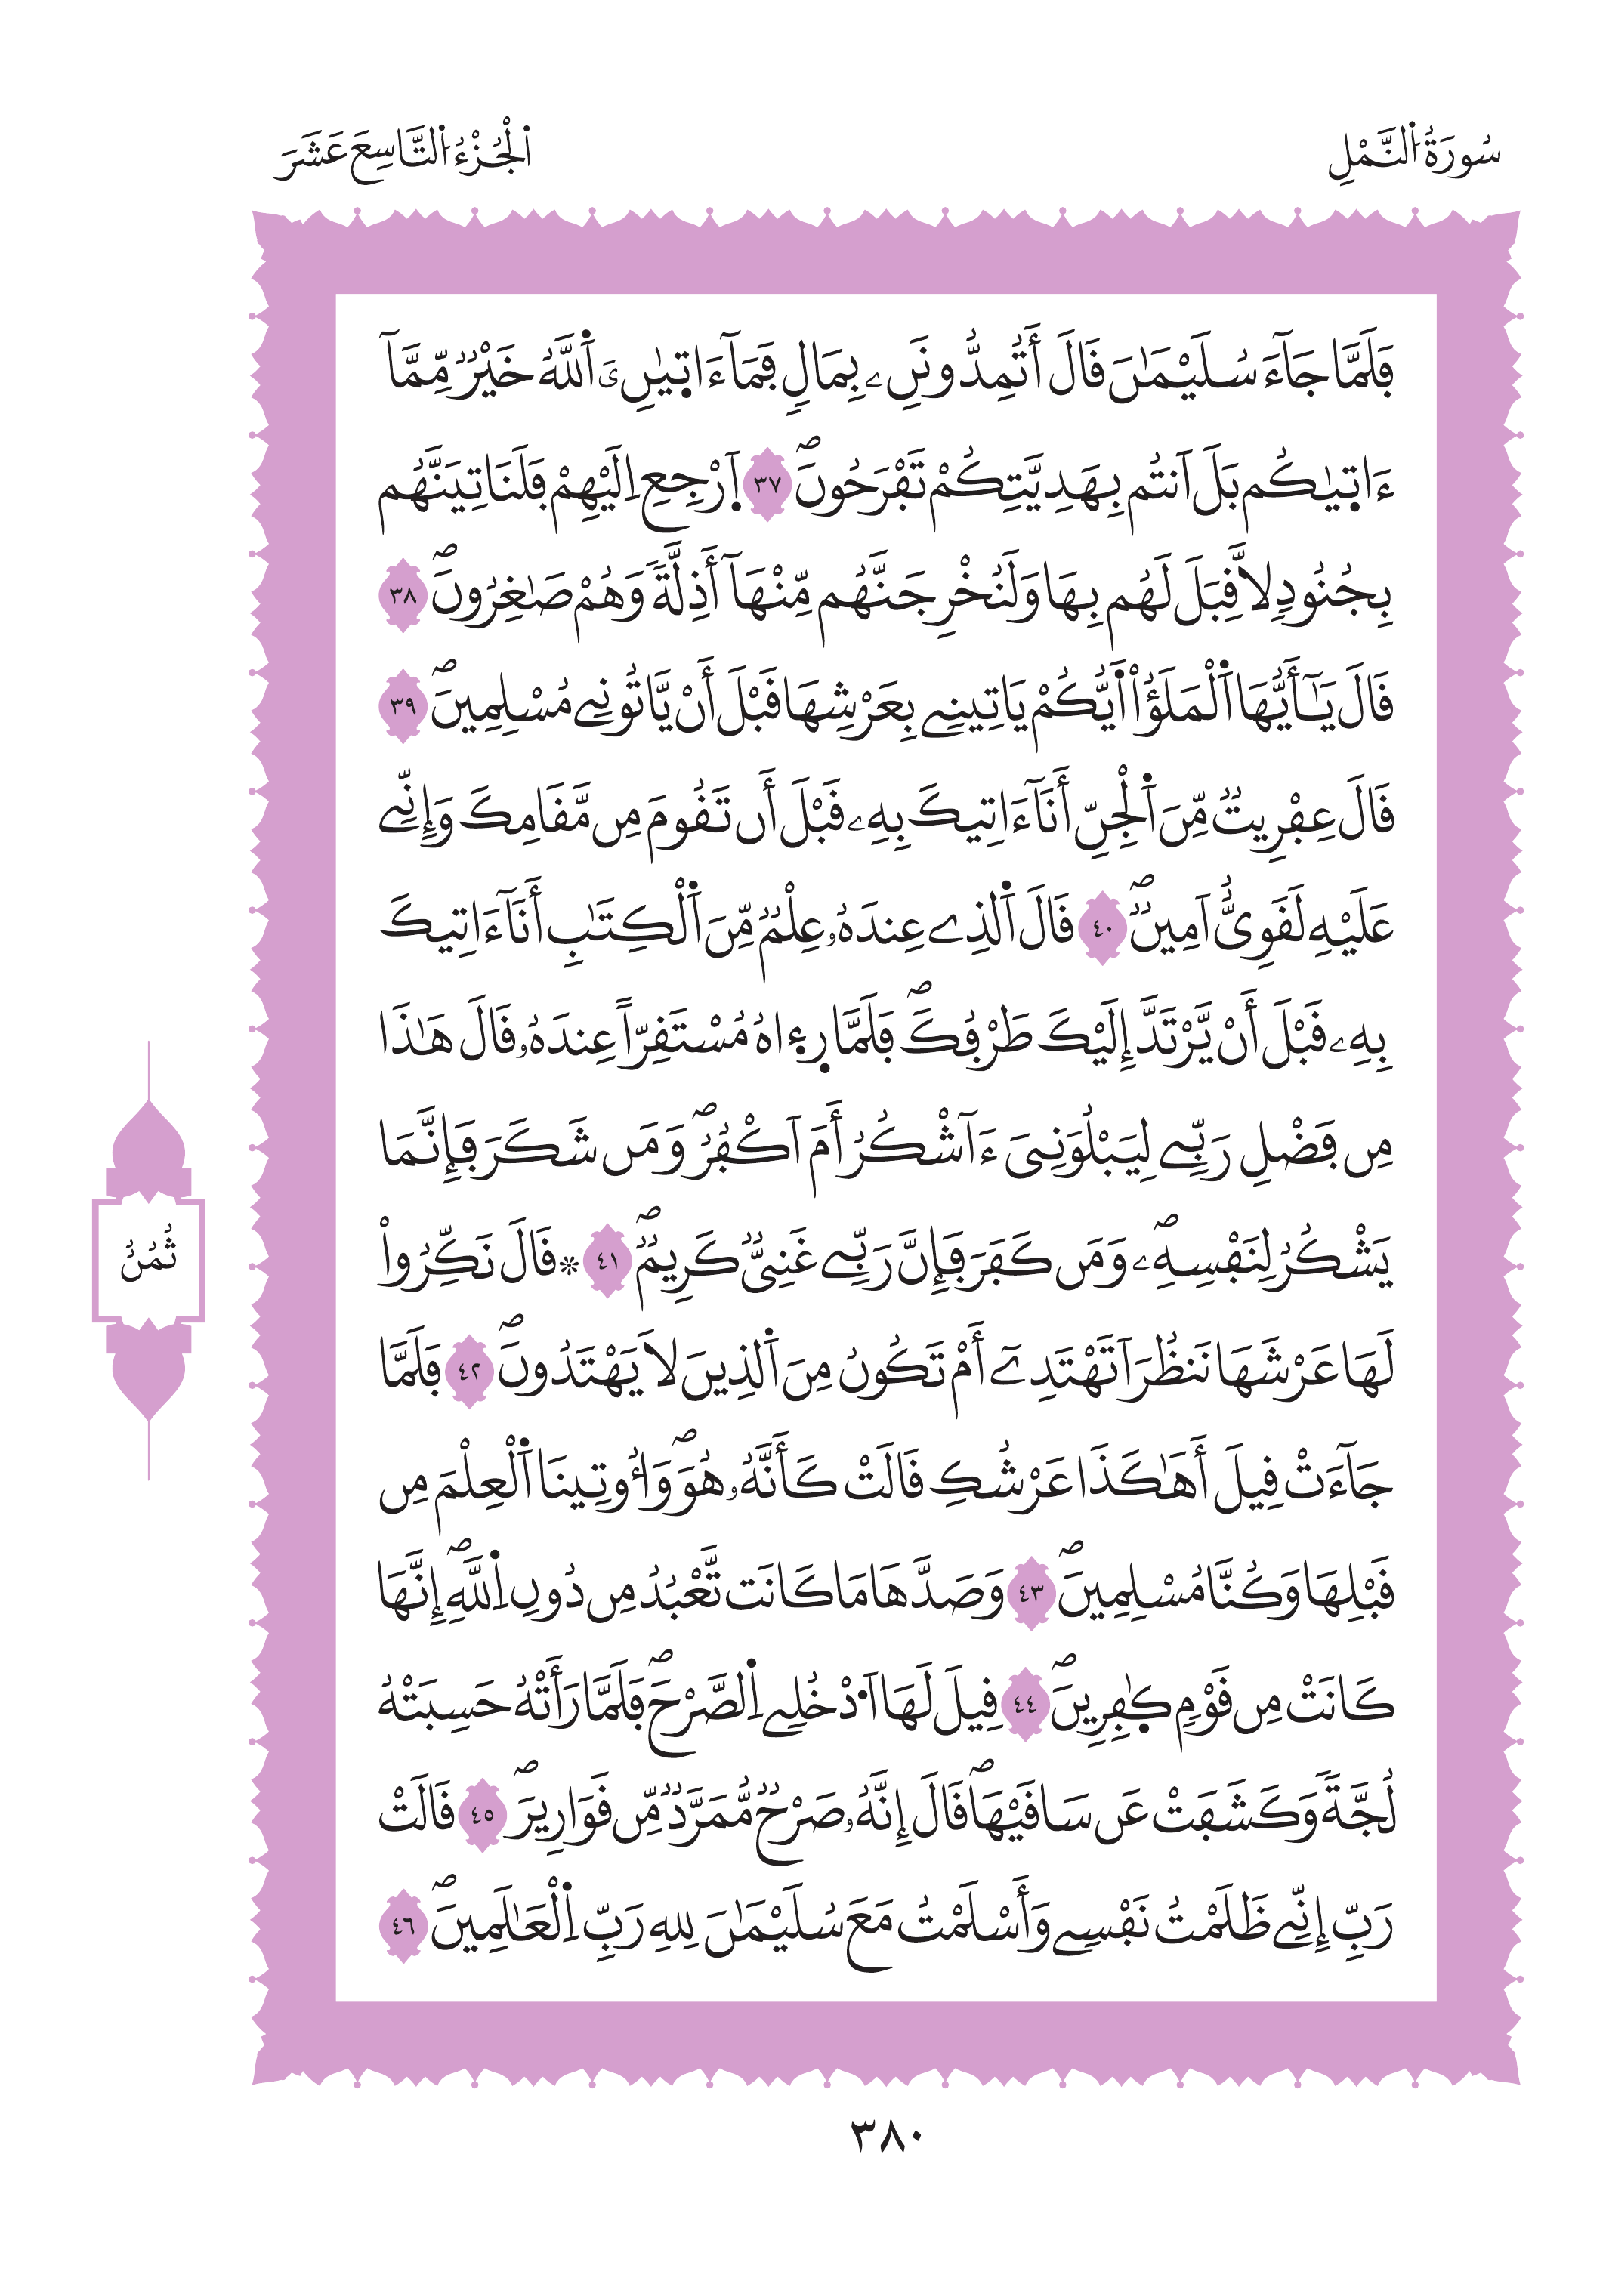 سُورَةُ اُ۬لنَّمْلِ
اَ۬لْجُزْءُ اُ۬لتَّاسِعَ عَشَرَ
فَلَمَّا جَآءَ سُلَيْمَٰنَ قَالَ أَتُمِدُّونَنِۦ بِمَالٖ فَمَآ ءَات۪يٰنِۦَ اَ۬للَّهُ خَيْرٞ مِّمَّآ
ءَات۪يٰكُم بَلَ اَنتُم بِهَدِيَّتِكُمْ تَفْرَحُونَۖ ٣٧ اَ۪رْجِعِ اِلَيْهِمْ فَلَنَاتِيَنَّهُم
بِجُنُودٖ لَّا قِبَلَ لَهُم بِهَا وَلَنُخْرِجَنَّهُم مِّنْهَآ أَذِلَّةٗ وَهُمْ صَٰغِرُونَۖ ٣٨
قَالَ يَٰٓأَيُّهَا اَ۬لْمَلَؤُاْ اَيُّكُمْ يَاتِينِے بِعَرْشِهَا قَبْلَ أَنْ يَّاتُونِے مُسْلِمِينَۖ ٣٩
قَالَ عِفْرِيتٞ مِّنَ اَ۬لْجِنِّ أَنَآ ءَاتِيكَ بِهِۦ قَبْلَ أَن تَقُومَ مِن مَّقَامِكَ وَإِنِّے
عَلَيْهِ لَقَوِيٌّ اَمِينٞۖ ٤٠ قَالَ اَ۬لذِے عِندَهُۥ عِلْمٞ مِّنَ اَ۬لْكِتَٰبِ أَنَآ ءَاتِيكَ
بِهِۦ قَبْلَ أَنْ يَّرْتَدَّ إِلَيْكَ طَرْفُكَۖ فَلَمَّا ر۪ء۪اهُ مُسْتَقِرّاً عِندَهُۥ قَالَ هَٰذَا
مِن فَضْلِ رَبِّے لِيَبْلُوَنِيَ ءَآشْكُرُ أَمَ اَكْفُرُۖ وَمَن شَكَرَ فَإِنَّمَا
يَشْكُرُ لِنَفْسِهِۦۖ وَمَن كَفَرَ فَإِنَّ رَبِّے غَنِيّٞ كَرِيمٞۖ ٤١ ۞ قَالَ نَكِّرُواْ
لَهَا عَرْشَهَا نَنظُرَ اَتَهْتَدِےٓ أَمْ تَكُونُ مِنَ اَ۬لذِينَ لَا يَهْتَدُونَۖ ٤٢ فَلَمَّا
جَآءَتْ قِيلَ أَهَٰكَذَا عَرْشُكِ قَالَتْ كَأَنَّهُۥ هُوَۖ وَأُوتِينَا اَ۬لْعِلْمَ مِن
قَبْلِهَا وَكُنَّا مُسْلِمِينَۖ ٤٣ وَصَدَّهَا مَا كَانَت تَّعْبُدُ مِن دُونِ اِ۬للَّهِۖ إِنَّهَا
كَانَتْ مِن قَوْمٖ كٰ۪فِرِينَۖ ٤٤ قِيلَ لَهَا اَ۟دْخُلِے اِ۬لصَّرْحَۖ فَلَمَّا رَأَتْهُ حَسِبَتْهُ
لُجَّةٗ وَكَشَفَتْ عَن سَاقَيْهَاۖ قَالَ إِنَّهُۥ صَرْحٞ مُّمَرَّدٞ مِّن قَوَارِيرَۖ ٤٥ قَالَتْ
رَبِّ إِنِّے ظَلَمْتُ نَفْسِے وَأَسْلَمْتُ مَعَ سُلَيْمَٰنَ لِلهِ رَبِّ اِ۬لْعَٰلَمِينَۖ ٤٦
ثُمُنُ
٣٨٠